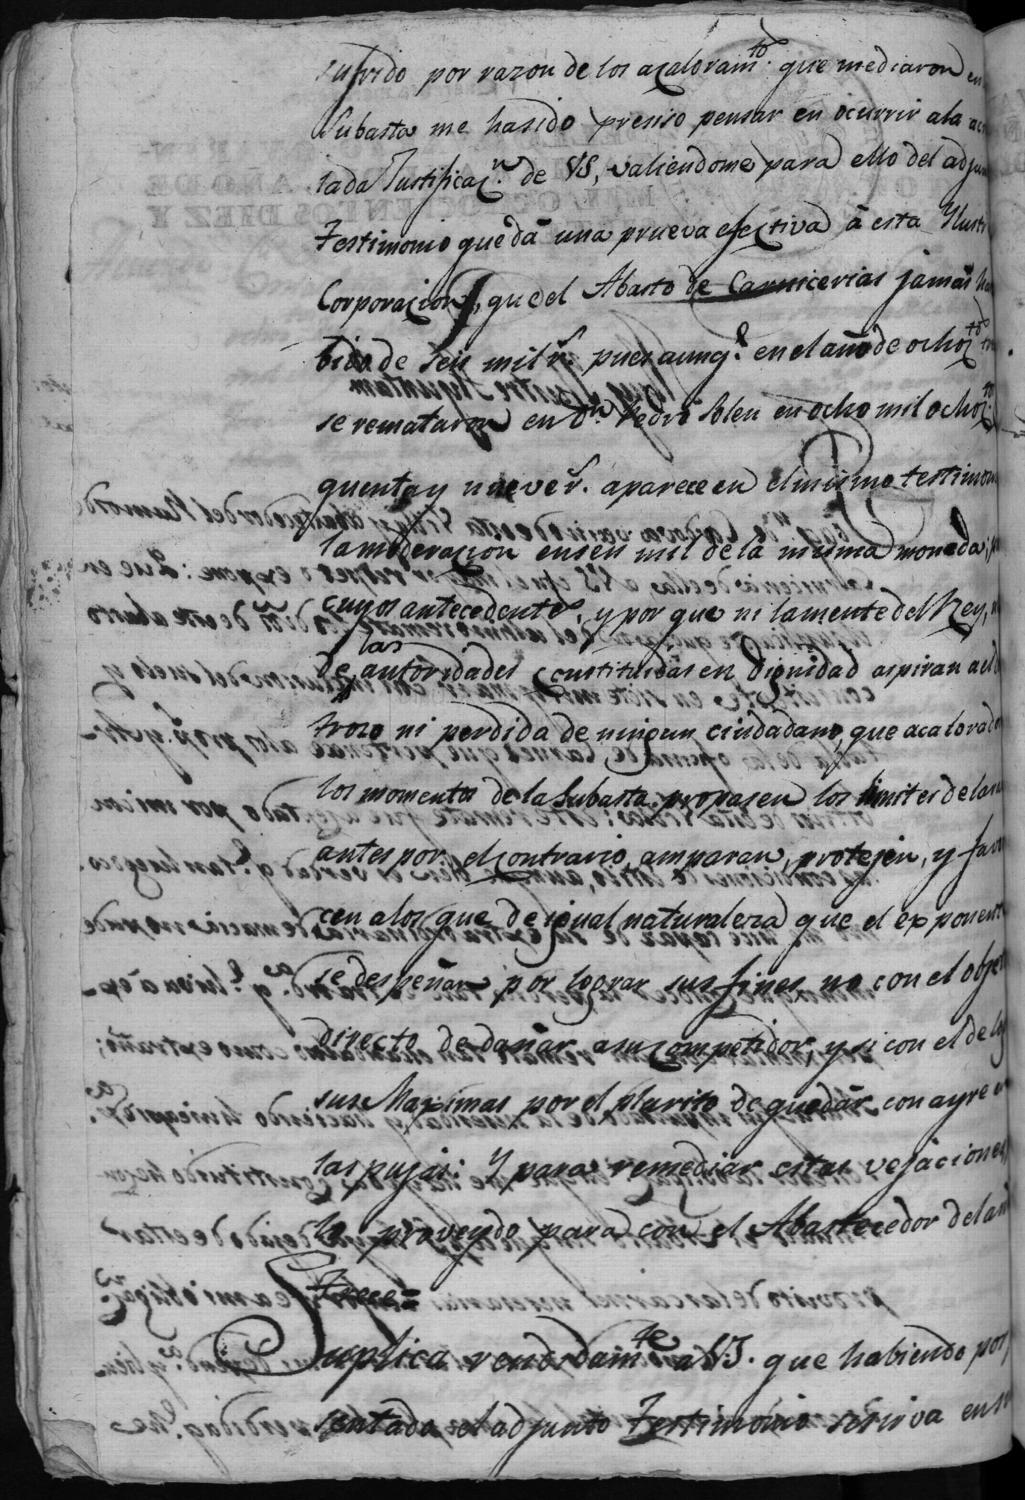 sufrido por razon de los acaloram.to que mediaron en
Subasta me hasido presiso pensar en ocurrir ala
tada Justificaç.n de VS, valiendome para ello del adjun
Testimonio que dá una prueva efectiva á esta Ylust
Corporaçion, que el Abasto de Carnicerias jamás ha
bido de seis mil r.s pues aunq.e en el año de ochoç.tos
se remataron en D.n Pedro Soleu en ocho mil ochoç.tos
quenta y nueve r.s aparece en el mismo testimon
la moderaçion en seis mil de la misma moneda;
cuyos antecedentes, y por que ni la mente del Rey,
de las autoridades constituidas en dignidad aspiran a el
trozo ni perdida de ningun ciudadano, que acalorado
los momentos de la Subasta propasen los limites dela
antes por el contrario, amparan, protejen, y favo
cen alos que de igual naturaleza que el exponente
se despeñan por lograr sus fines no con el obje
directo de dañar a su competidor, y si con el de
sus Maximas por el plurito de quedar con ayre
las pujas: Y para remediar estas vejaciones,
lo proveydo para con el Abastecedor del
trece=
Suplica rendidam.te a VS. que habiendo por
sentado el adjunto Testimonio se sirva en